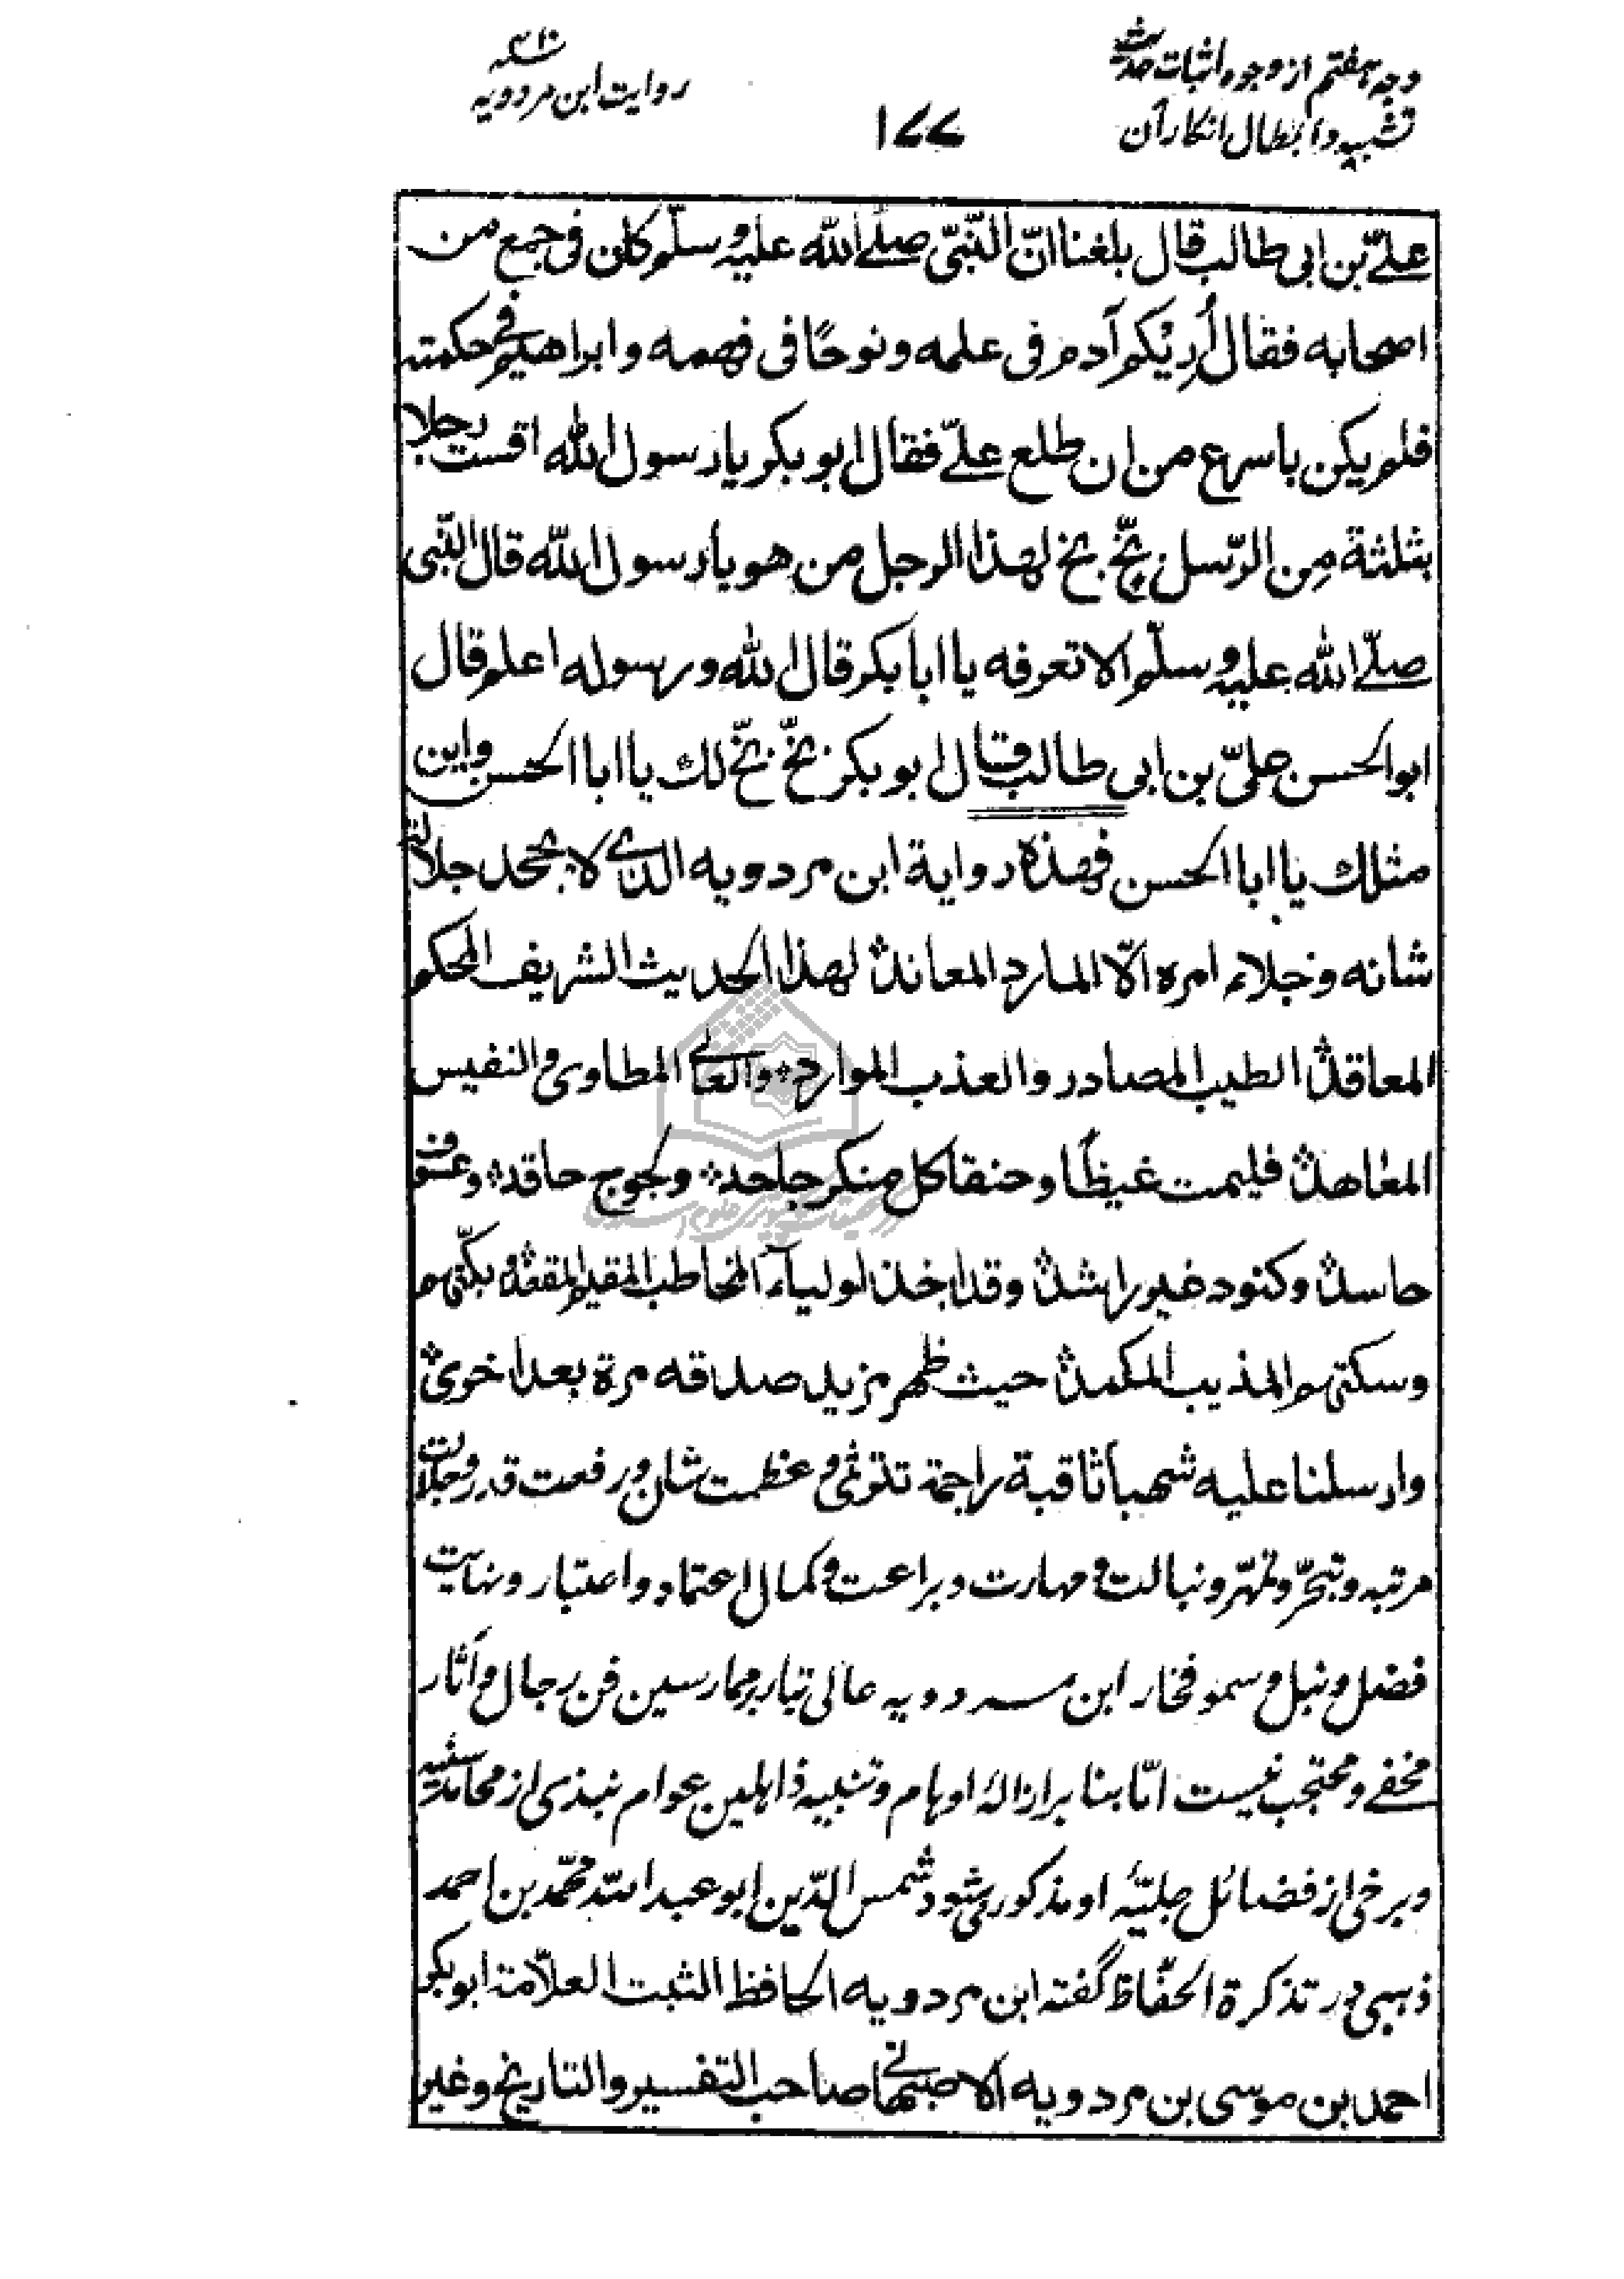 وجه هفتم از وجوه اثبات حدیث
تشبیه و ابطال انکار آن
۱۷۷
روایت ابن مردویه
علیّ بن ابی طالب قال بلغنا انّ النّبیّ صلّے الله علیه و سلّم کان فی جمع من
اصحابه فقال أُرِیْکم آدم فی علمه و نوحًا فی فهمه و ابراهیم فی حکمته
فلم یکن باسرع من ان طلع علیّ فقال ابو بکر یا رسول الله اقست رجلا
بثلثة مِن الرّسل بخّ بخ لهذا الرجل من هو یا رسول الله قال النّبی
صلّے الله علیه و سلّم الا تعرفه یا ابا بکر قال الله و رسوله اعلم قال
ابو الحسن علیّ بن ابی طالب قال ابو بکر بخّ بخّ لك یا ابا الحسن و این
مثلك یا ابا الحسن فهذه روایة ابن مردویه الذی لا یجحد جلالة
شانه و جلاء امره الّا المارد المعاند لهذا الحدیث الشریف المحکم
المعاقد الطیب المصادر و العذب الموارد والعالی المطاوی و النفیس
المعاهد فلیمت غیظًا و حنقا کل منکر جاحد و لجوج حاقد و
حاسد و کنود غیر راشد و قد اخذ اولیاء المخاطب المقیم المقعد بکّتهم
و سکتهم المذیب المکمد حیث ظهر مزید صدقه مرة بعد اخری
و ارسلنا علیه شهبا ثاقبة راجمة تتری و عظمت شان و رفعت قدر و جلالت
مرتبه و تبحّر و تمهّر و نبالت و مهارت و براعت و کمال اعتماد و اعتبار و نهایت
فضل و نبل و سمو فخار ابن مردویه عالی تبار بر ممارسین فن رجال و آثار
مخفے و محتجب نیست امّا بنا بر ازالۀ اوهام و تنبیه ذاهلین عوام نبذی از محامد سنیّه
و برخی از فضائل جلیّۀ او مذکور می شود شمس الدّین ابو عبد الله محمّد بن احمد
ذهبی در تذکرة الحفّاظ گفته ابن مردویه الحافظ الثبت العلّامة ابو بکر
احمد بن موسی بن مردویه الاصبهانی صاحب التفسیر و التاریخ و غیر